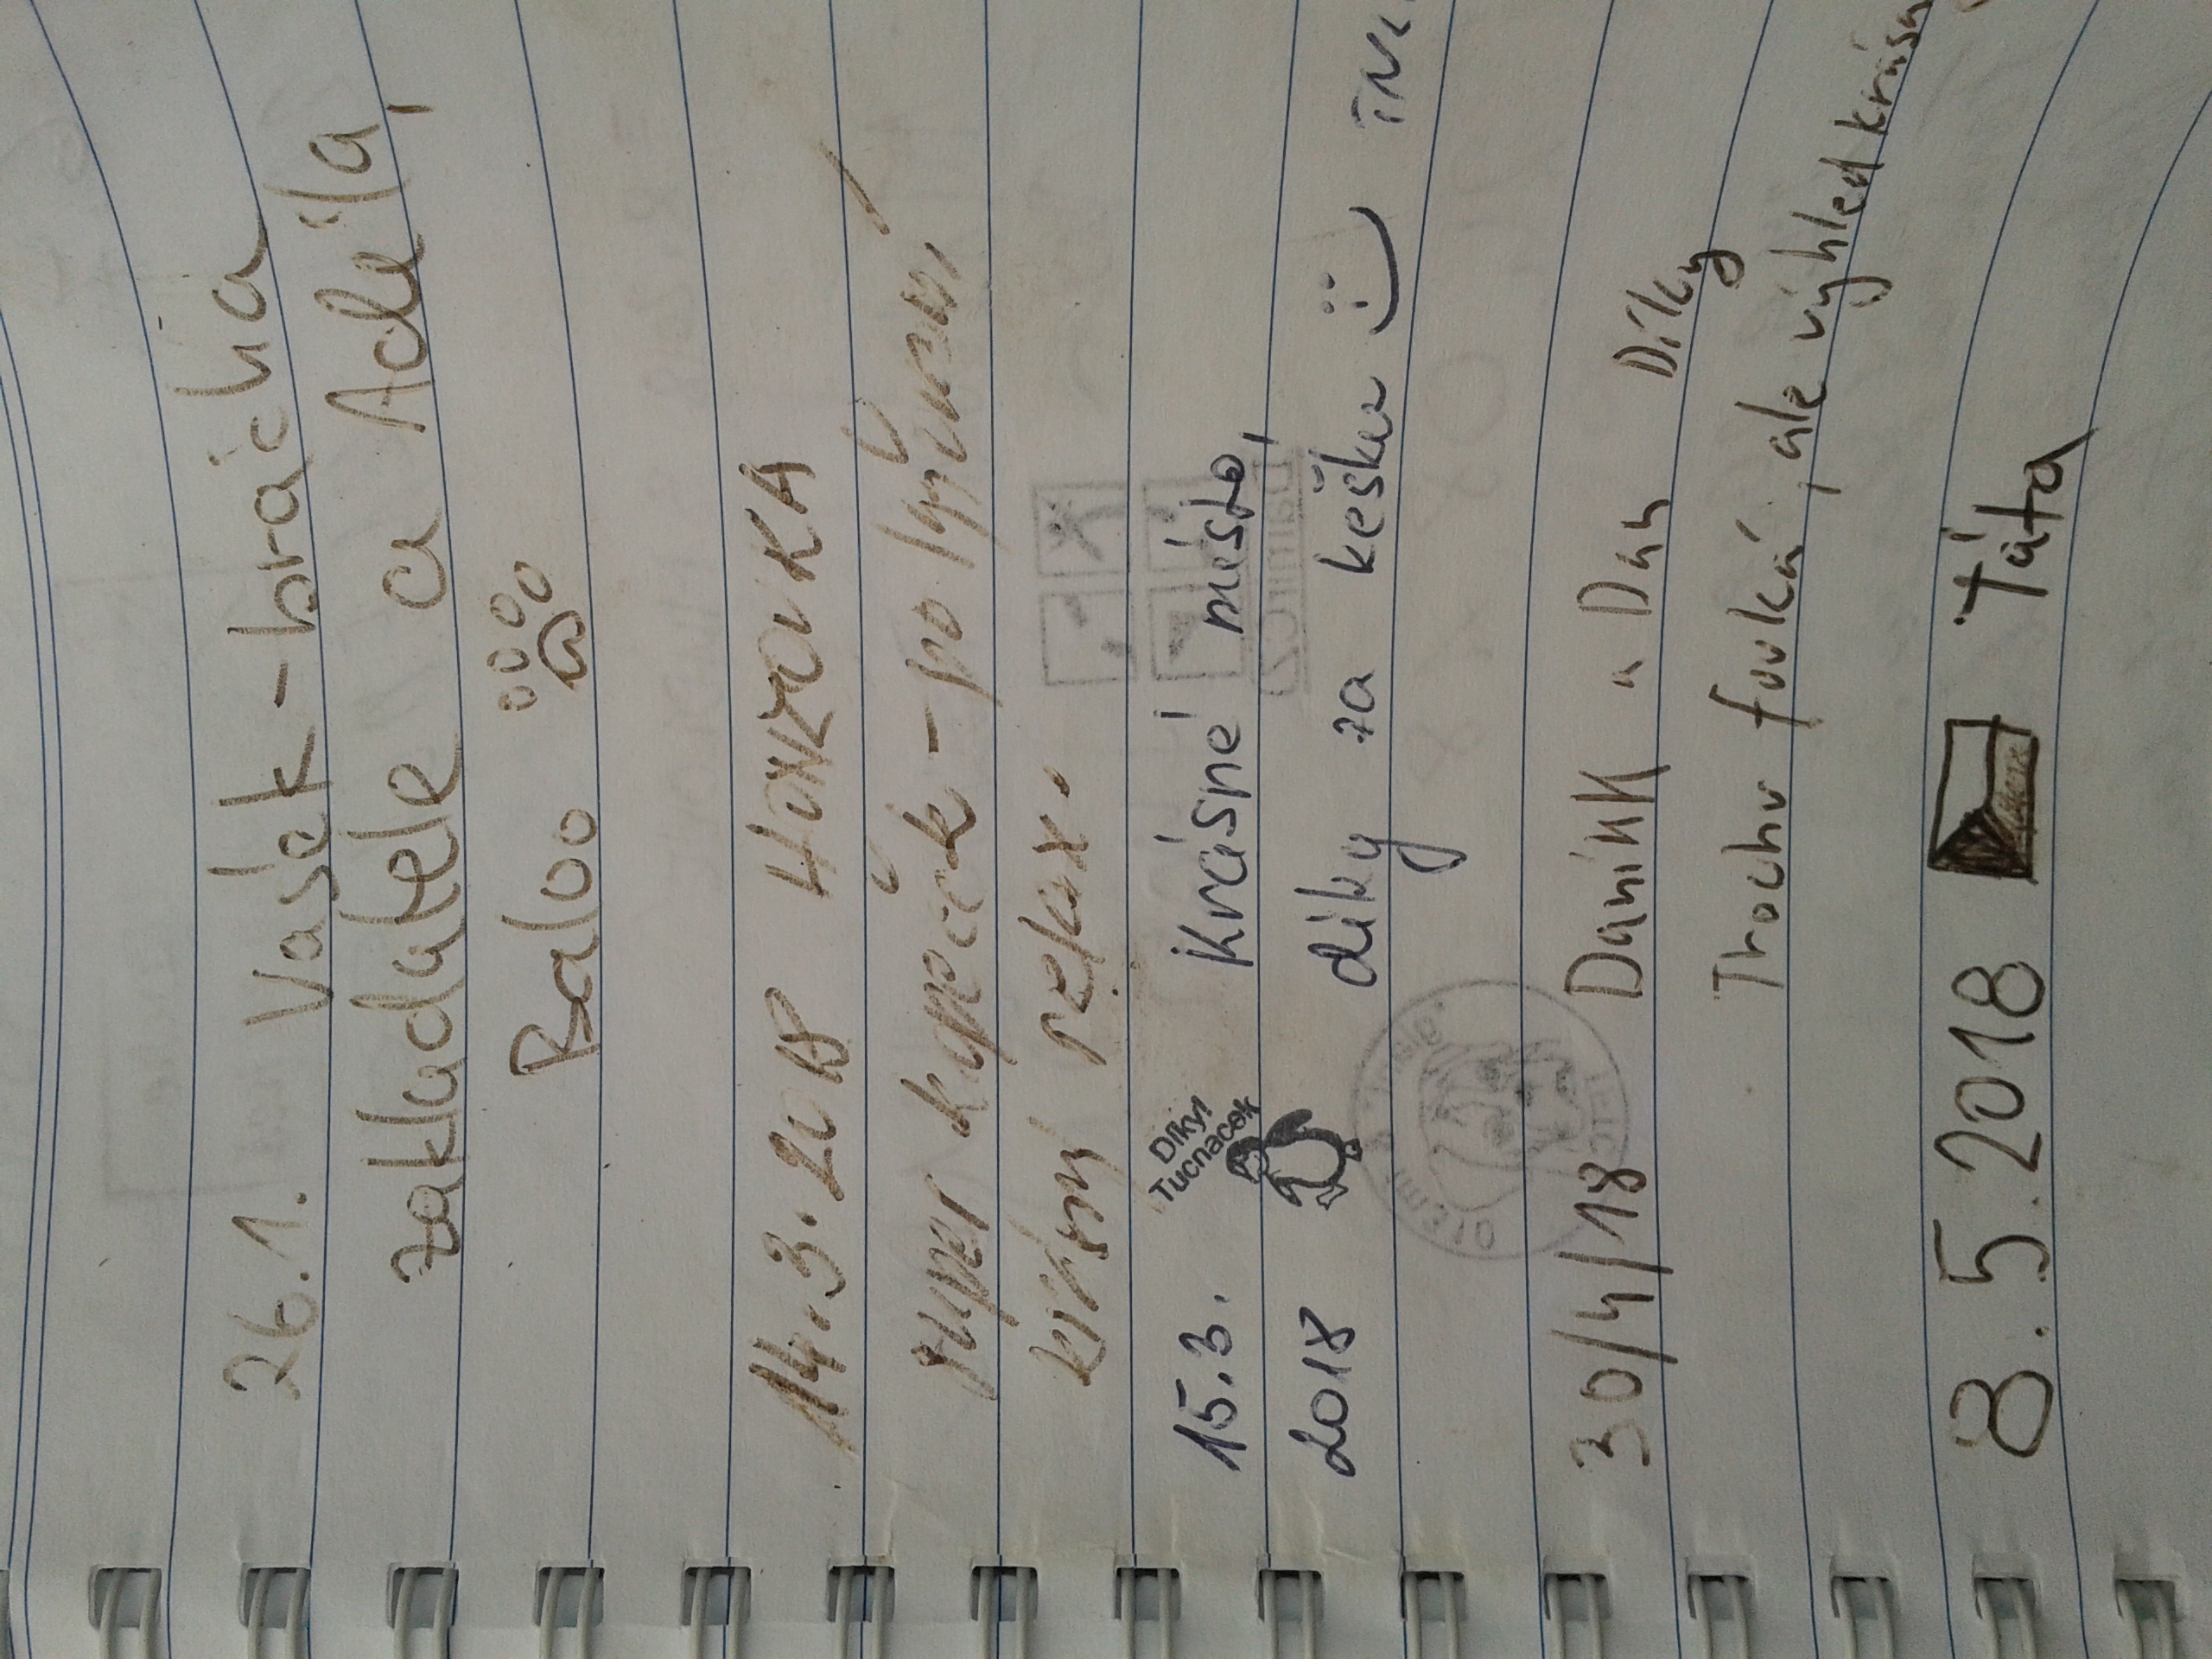 26.1. Vašek - brácha
zakladatele a Adéla,
Baloo
14.3.2018 HONZOVKA
super kopeček - po lyžování
krásný relax.
15.3. Díky! Tucnacek Krásné místo,
2018 díky za kešku
30/4/18 Danink a Dan Díky
Trochu fouká, ale výhled krásn
8.5.2018 táta